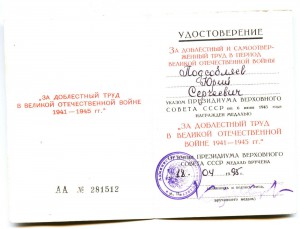 „ЗА ДОБЛЕСТНЫЙ ТРУД
В ВЕЛИКОЙ ОТЕЧЕСТВЕННОЙ ВОЙНЕ
1941—1945 гг.“
АА № 281512
УДОСТОВЕРЕНИЕ
ЗА ДОБЛЕСТНЫЙ И САМООТВЕР-
ЖЕННЫЙ ТРУД В ПЕРИОД
ВЕЛИКОЙ ОТЕЧЕСТВЕННОЙ ВОЙНЫ
Юрий
Сергеевич
УКАЗОМ ПРЕЗИДИУМА ВЕРХОВНОГО
СОВЕТА СССР от 6 июня 1945 года
НАГРАЖДЕН МЕДАЛЬЮ
„ЗА ДОБЛЕСТНЫЙ ТРУД
В ВЕЛИКОЙ ОТЕЧЕСТВЕННОЙ
ВОЙНЕ 1941—1945 гг.“
ПРЕЗИДИУМА ВЕРХОВНОГО
СОВЕТА СССР МЕДАЛЬ ВРУЧЕНА
04 95